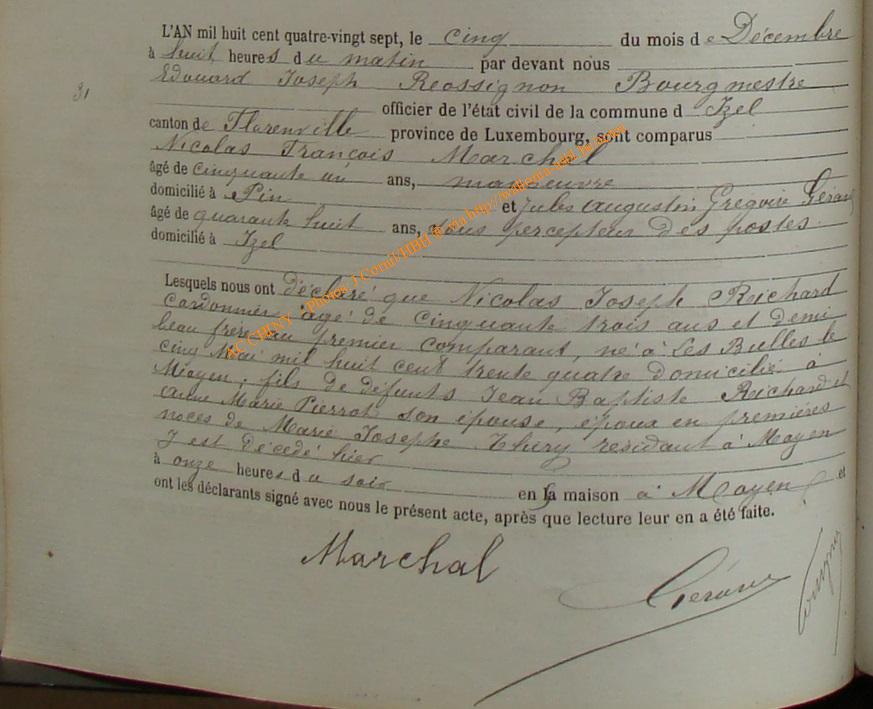 L'AN mil huit cent quatre-vingt sept, le cinq du mois de Décembre
à huit heures du matin par devant nous
Edouard Joseph Rossignon Bourgmestre
31
officier de l'état civil de la commune d Izel
canton de Florenville province de Luxembourg, sont comparus
Nicolas François Marchal
âgé de cinquante un ans, manoeuvre
domicilié à Pin et Jules Augustin Grégoire Gérard
âgé de quarante huit ans, sous percepteur des postes
domicilié à Izel
Lesquels nous ont déclaré que Nicolas Joseph Reichard
Cordonnier âgé de cinquante trois ans et demi
beau frère au premier comparant, né à Les Bulles le
cinq Mai mil huit cent trente quatre domicilié à
Moyen, fils de défunts Jean Baptiste Reichard et
Anne Marie Pierrot son épouse, époux en premières
noces de Marie Josephe Thiry résidant à Moyen
y est décédé hier
à onze heures du soir en sa maison à Moyen et
ont les déclarants signé avec nous le présent acte, après que lecture leur en a été faite.
Marchal
Gérard